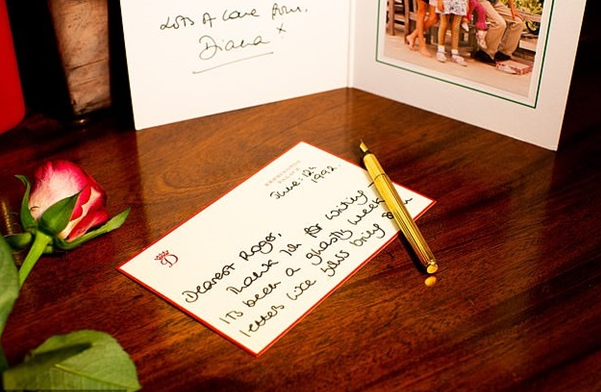 Lots of Love from,
Diana x
June: 12th
1992.
D
Dearest Roger,
Thank you for writing
It's been a ghastly week
letters like yours bring